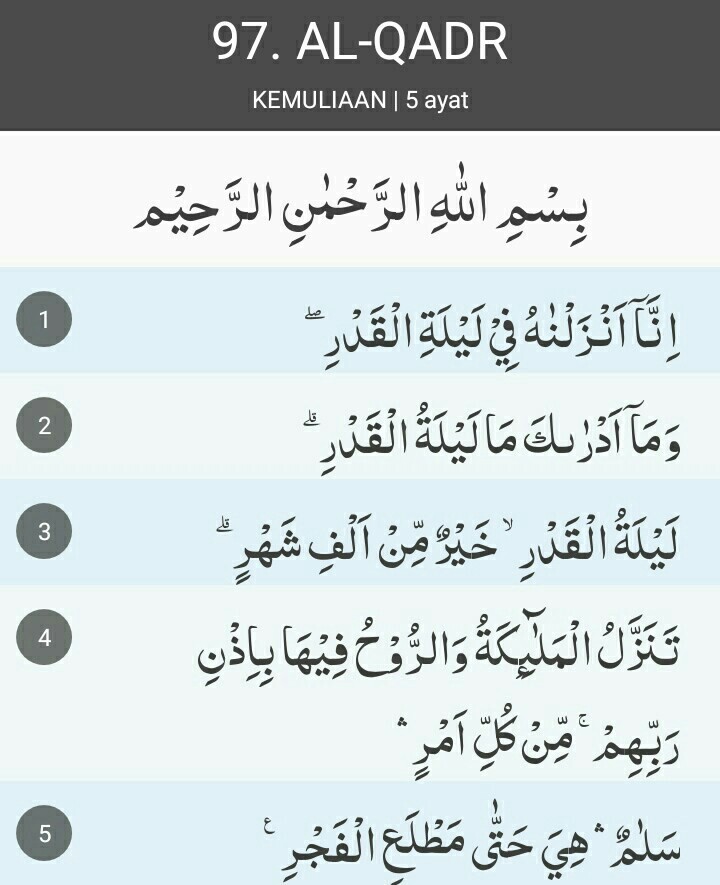 97. AL-QADR
KEMULIAAN | 5 ayat
بِسْمِ اللّٰهِ الرَّحْمٰنِ الرَّحِيْمِ
1 اِنَّآ اَنْزَلْنٰهُ فِيْ لَيْلَةِ الْقَدْرِ ۖ
2 وَمَآ اَدْرٰىكَ مَا لَيْلَةُ الْقَدْرِ ۗ
3 لَيْلَةُ الْقَدْرِ ۙ خَيْرٌ مِّنْ اَلْفِ شَهْرٍ ۗ
4 تَنَزَّلُ الْمَلٰۤىِٕكَةُ وَالرُّوْحُ فِيْهَا بِاِذْنِ
رَبِّهِمْ ۚ مِّنْ كُلِّ اَمْرٍ ۛ
5 سَلٰمٌ ۛ هِيَ حَتّٰى مَطْلَعِ الْفَجْرِ ࣖ